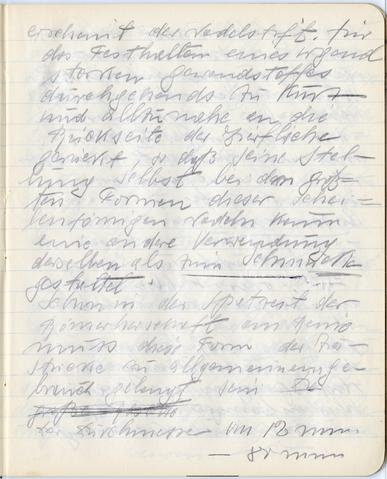 erscheint der Nadelstift, für
das Festhalten eines irgend
starken Gewandstoffes
durchgehends zu kurz
und allzunahe an die
Rückseite der Zierfläche
gerückt, so daß seine Stel-
lung selbst bei den größ-
ten Formen dieser Schei-
benförmigen Nadeln kaum
eine andere Verwendung
derselben als zum Schmucke
gestattet.
Schon in der Spätzeit der
Römerherrschaft am Rhein
muss diese Form der
zu allgemeinem Ge-
brauch gelangt sein
Der Durchmesser von 12 mm
— 80 mm